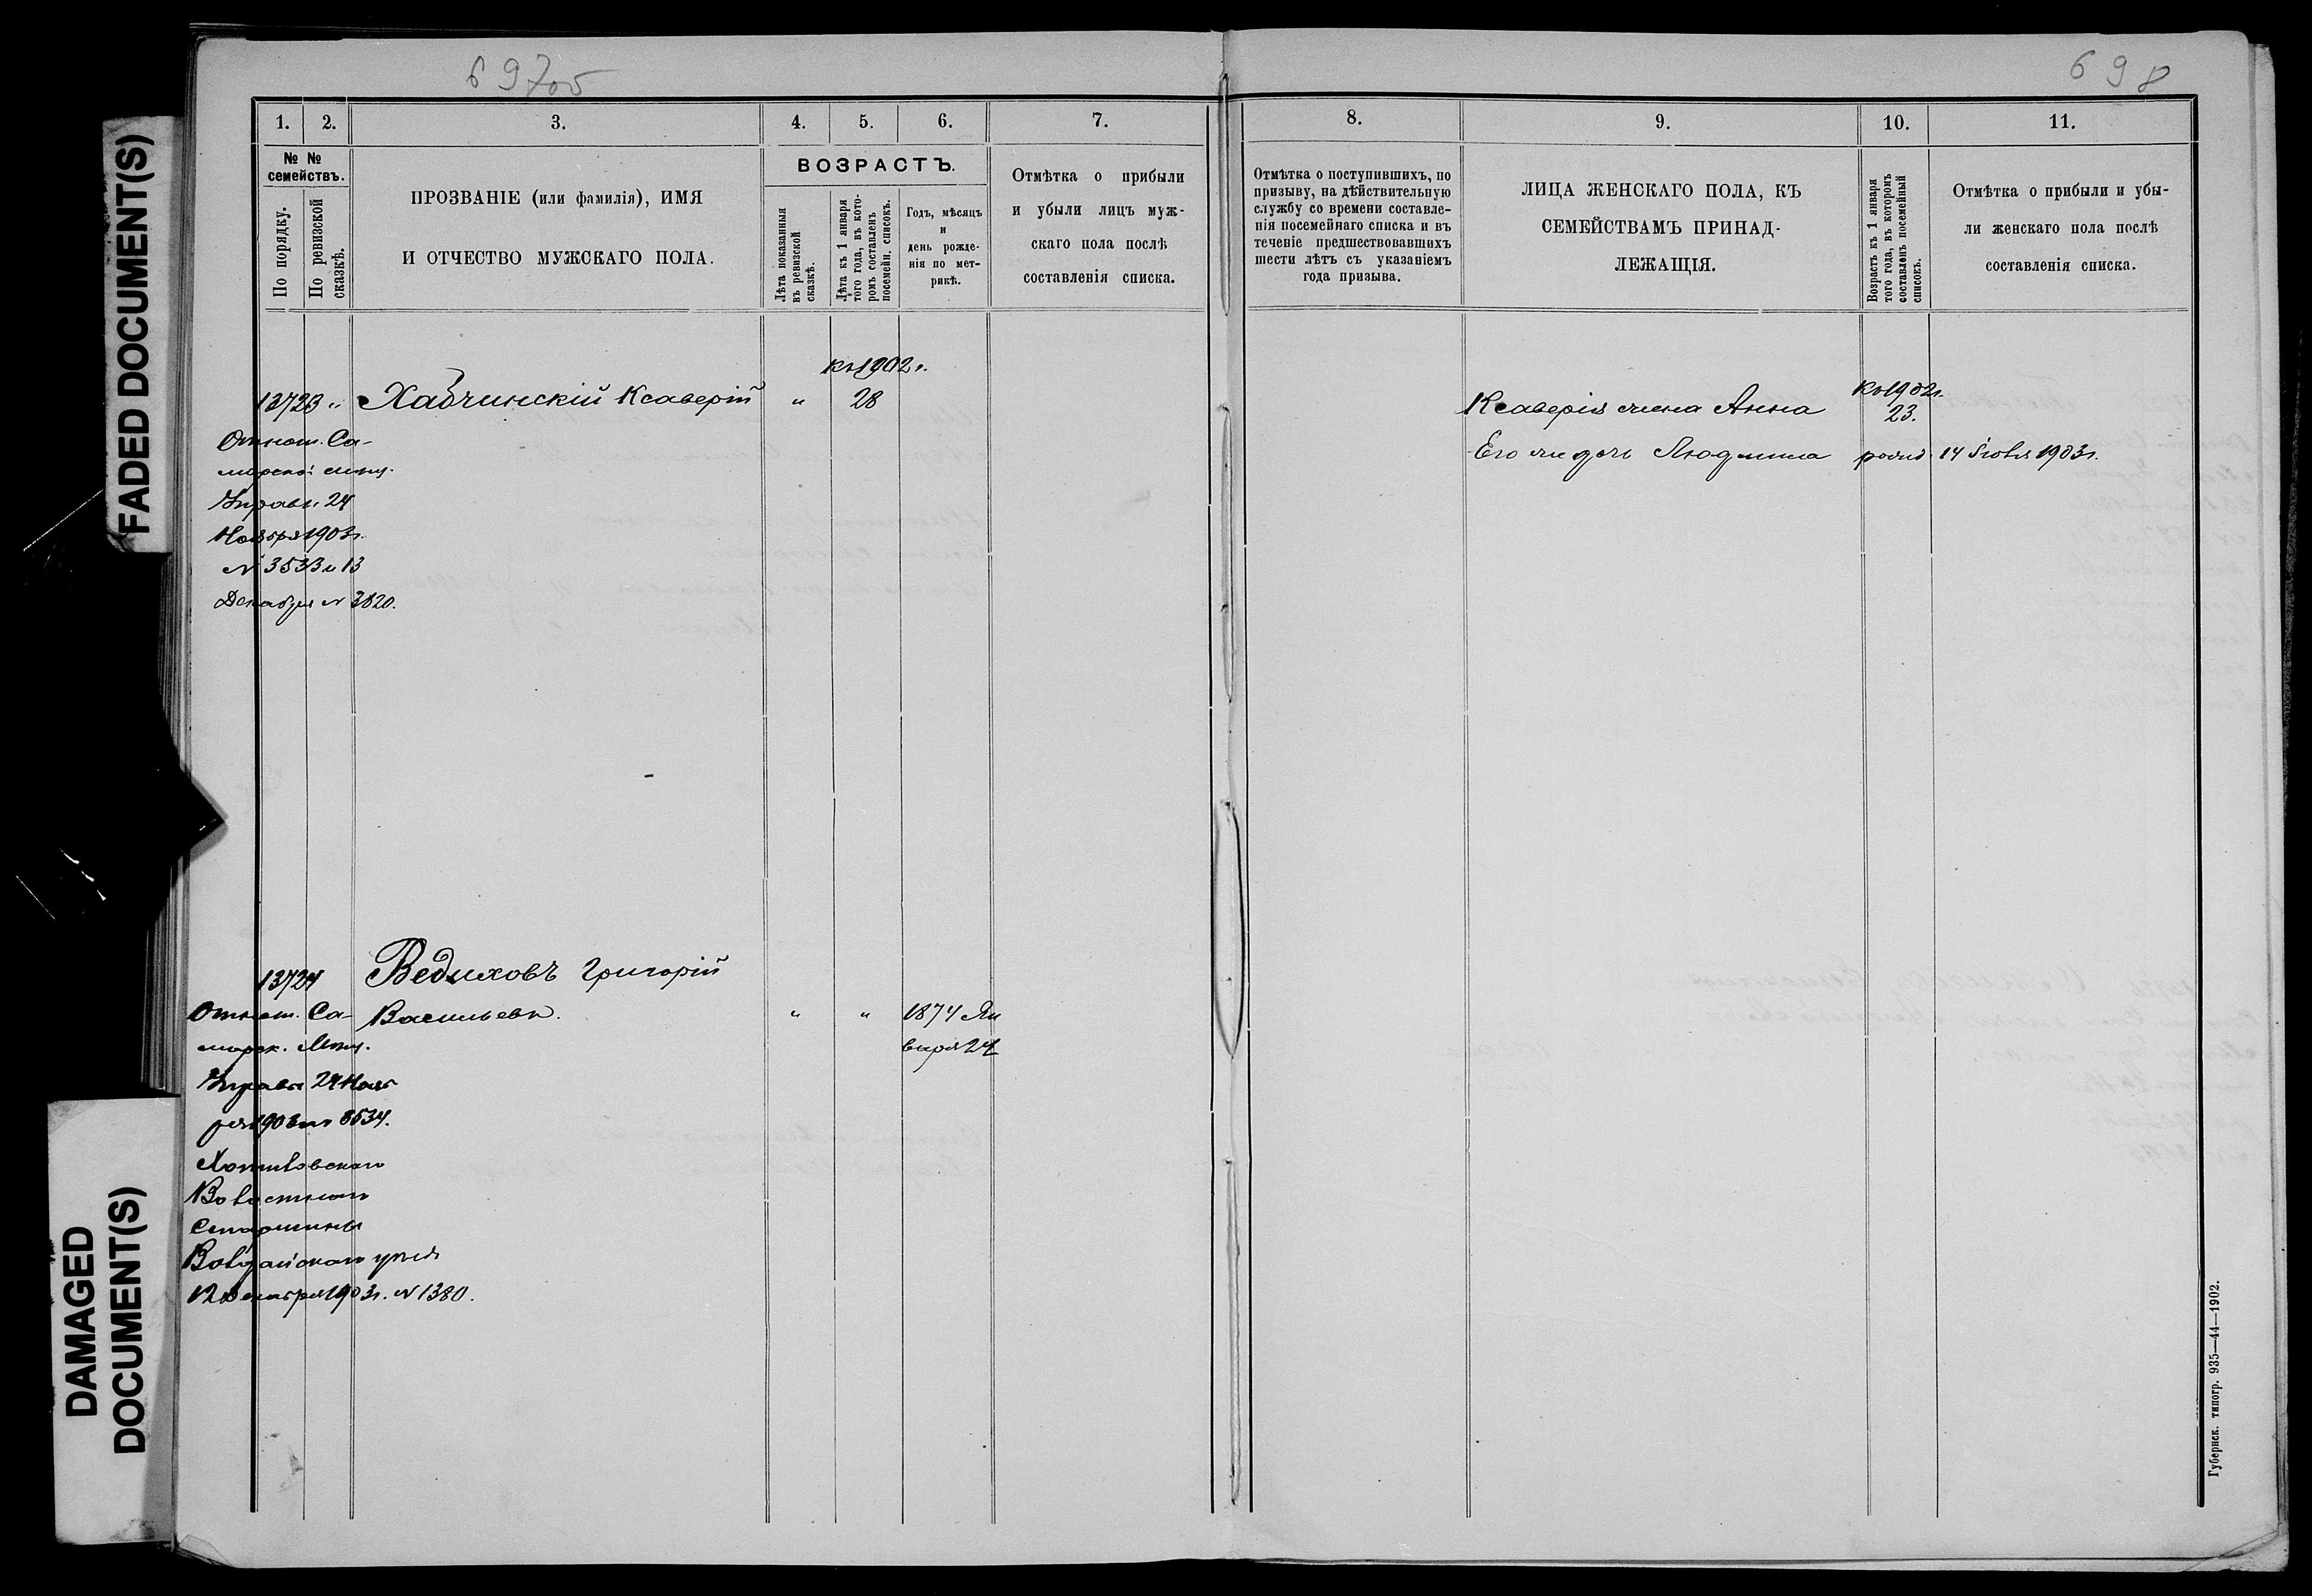 697об
698
FADED DOCUMENT(S)
DAMAGED
DOCUMENT(S)
1.
2.
3.
4.
5.
6.
7.
№ №
семействъ.
По порядку.
По ревизской
сказкѣ.
ПРОЗВАНІЕ (или фамилія), ИМЯ
И ОТЧЕСТВО МУЖСКАГО ПОЛА.
ВОЗРАСТЪ.
Лѣта показанныя
въ ревизской
сказкѣ.
Лѣта къ 1 января
того года, въ кото-
ромъ составленъ
посемейн. списокъ.
Годъ, мѣсяцъ
и
день рожде-
нія по мет-
рикѣ.
Отмѣтка о прибыли
и убыли лицъ муж-
скаго пола послѣ
составленія списка.
къ 1902 г.
13723 " Хабчинскій Ксаверій " 28
Отнош. Са-
марской мѣщ.
Управы 24
Ноября 1903 г.
№ 3533 и 13
Декабря № 3820.
13724 Ведиховъ Григорій
Отнош. Са- Васильевъ. " " 1874 Ян
марск. Мѣщ. варя 24
Управы 24 Нояб
ря 1903 г. № 3534.
Волостного
Старшины
Валдайскаго уѣзда
12 Декабря 1903 г. № 1380.
8.
9.
10.
11.
Отмѣтка о поступившихъ, по
призыву, на дѣйствительную
службу со времени составле-
нія посемейнаго списка и въ
теченіе предшествовавшихъ
шести лѣтъ съ указаніемъ
года призыва.
ЛИЦА ЖЕНСКАГО ПОЛА, КЪ
СЕМЕЙСТВАМЪ ПРИНАД-
ЛЕЖАЩІЯ.
Возрастъ къ 1 января
того года, въ которомъ
составленъ посемейный
списокъ.
Отмѣтка о прибыли и убы-
ли женскаго пола послѣ
составленія списка.
къ 1902 г.
Ксаверія жена Анна 23.
Его же дочь Людмила родил. 14 1903 г.
Губернск. типогр. 935—44—1902.